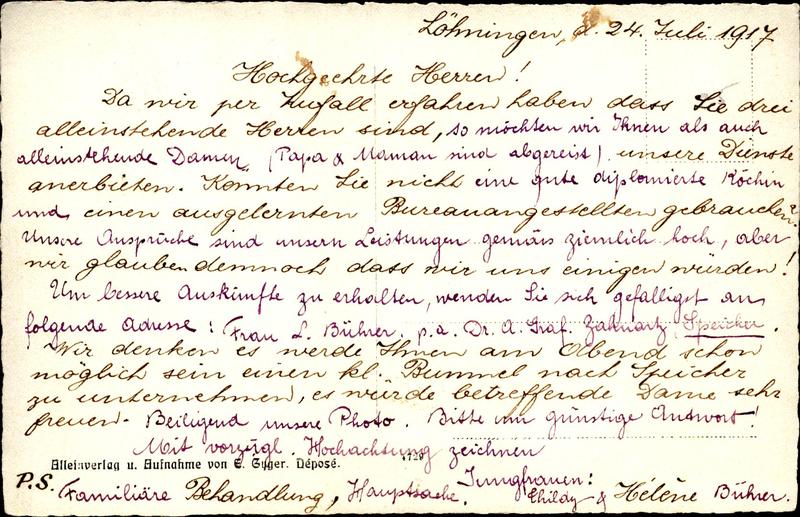 Löhningen, d. 24. Juli 1917
Hochgeehrte Herren!
Da wir per Zufall erfahren haben dass Sie drei
alleinstehende Herren sind, so möchten wir Ihnen als auch
alleinstehende Damen, (Papa & Maman sind abgereist) unsere Dienste
anerbieten. Könnten Sie nicht eine gute diplomierte Köchin
und einen ausgelernten Bureauangestellten gebrauchen?
Unsere Ansprüche sind unsern Leistungen gemäss ziemlich hoch, aber
wir glauben demnoch dass wir uns einigen würden!
Um bessere Auskünfte zu erhalten, wenden Sie sich gefälligst an
folgende Adresse: Frau L. Bührer. p.a. Dr. A. Graf. Zahnarzt, Speicher.
Wir denken es werde Ihnen am Abend schon
möglich sein einen kl. Bummel nach Speicher
zu unternehmen, es würde betreffende Dame sehr
freuen. Beiligend unsere Photo. Bitte um günstige Antwort!
Mit vorzügl. Hochachtung zeichnen
Alleinverlag u. Aufnahme von E. Gyger. Déposé.
Jungfrauen:
P.S. Familiäre Behandlung, Hauptsache. & Hélène Bührer.